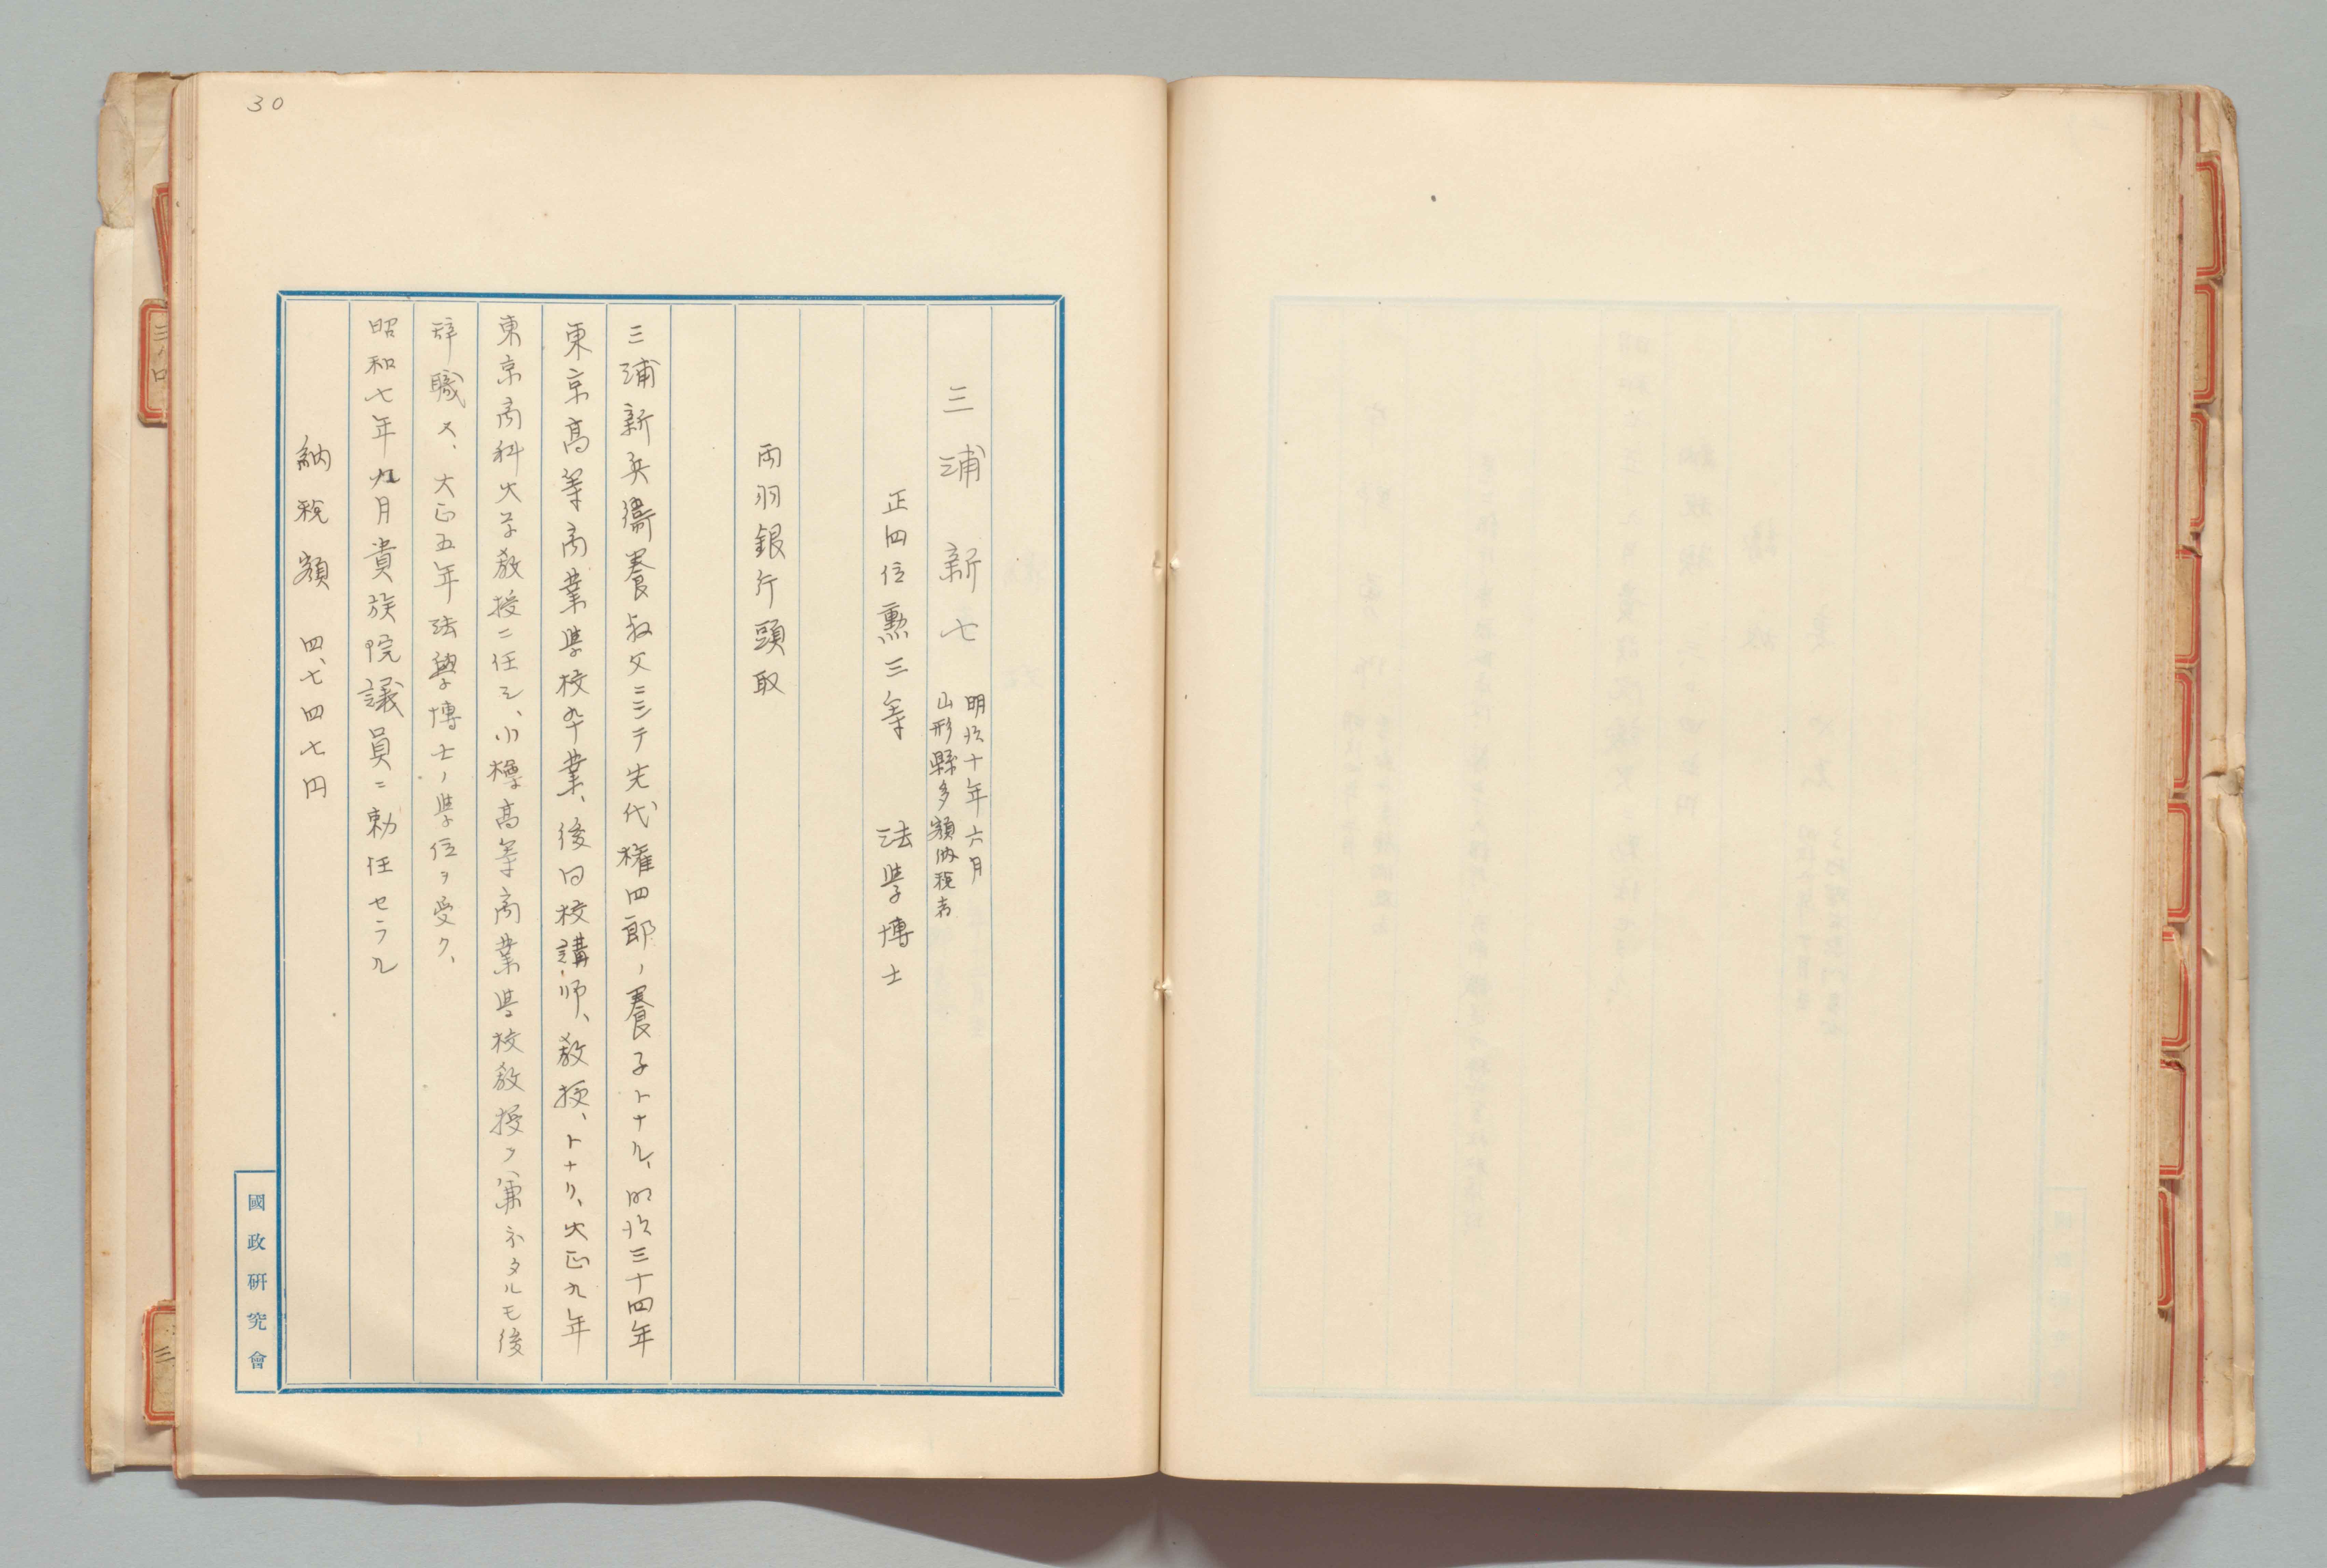 30
三浦新七
明治十年六月
山形縣多額納税者
正四位勲三等 法学博士
両羽銀行頭取
三浦新兵衞養叔父ニシテ先代権四郎ノ養子トナル、明治三十四年
東京高等商業學校卆業、後同校講師、教授、トナリ、大正九年
東京商科大学教授ニ任シ、小樽高等商業學校教授ヲ兼ネタルモ後
辞職ス、大正五年法學博士ノ學位ヲ受ク、
昭和七年九月貴族院議員ニ勅任セラル
納税額 四、七四七円
國政研究會
三ノ口
三